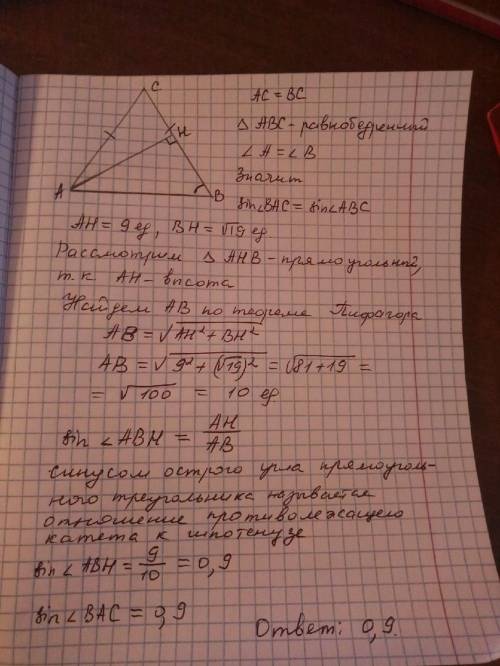 C
H
A
B
AC = BC
Δ ABC - равнобедренный
∠A = ∠B
Значит
sin∠BAC = sin∠ABC
AH = 9 ед, BH = √19 ед.
Рассмотрим Δ AHB - прямоугольный,
т.к AH - высота
Найдем AB по теореме Пифагора
AB = √AH² + BH²
AB = √9² + (√19)² = √81+19 =
= √100 = 10 ед
sin ∠ABH = AH/AB
синусом острого угла прямоуголь-
ного треугольника называется
отношение противолежащего
катета к гипотенузе
sin∠ABH = 9/10 = 0,9
sin∠BAC = 0,9
Ответ: 0,9.